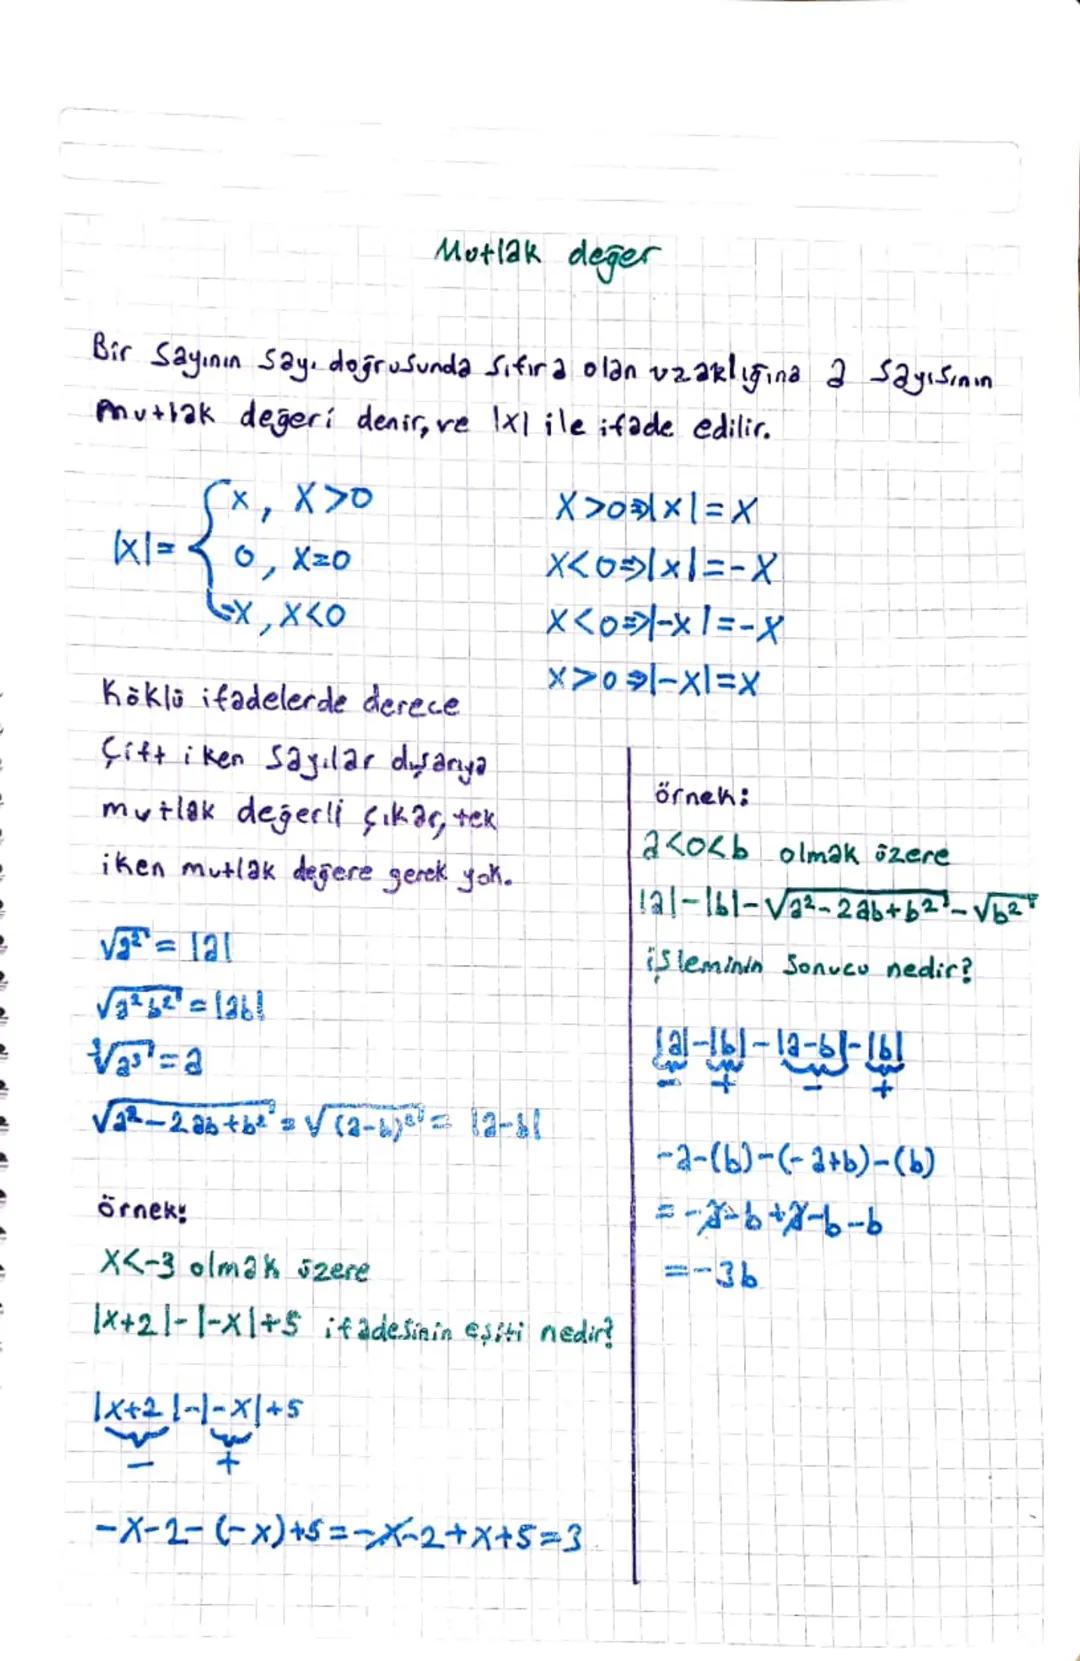 Mutlak değer
Bir sayının sayı doğrusunda sıfıra olan uzaklığına a sayısının
mutlak değeri denir, ve |x| ile ifade edilir.
|x| = { x, x>0
0, x=0
-x, x<0
x>0⇒|x|=x
x<0⇒|x|=-x
x<0⇒|-x|=-x
x>0⇒|-x|=x
Köklü ifadelerde derece
çift iken sayılar dışarıya
mutlak değerli çıkar, tek
iken mutlak değere gerek yok.
√a² = |a|
√a²b² = |ab|
³√a³ = a
√a²-2ab+b² = √(a-b)² = |a-b|
örnek:
x<-3 olmak üzere
|x+2|-|-x|+5 ifadesinin eşiti nedir?
|x+2|-|-x|+5
- +
-x-2-(-x)+5=-x-2+x+5=3
örnek:
a<0<b olmak üzere
|a|-|b|-√a²-2ab+b²-√b²
işleminin sonucu nedir?
|a|-|b|-|a-b|-|b|
- + - +
-a-(b)-(-a+b)-(b)
=-a-b+a-b-b
=-3b